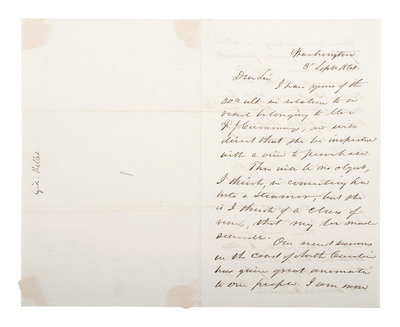 Washington
3d Sept. 1861
Dear Sir
I have yours of the
30th ult in relation to a
vessel belonging to
F J Cummings, &
direct that she be inspected
with a view to purchase.
There will be no object,
I think, in converting her
into a steamer, but she
is I think of a class of
that may be made
Our recent success
on the coast of North Carolina
has given great animation
to our people. I am now
Gid. Welles